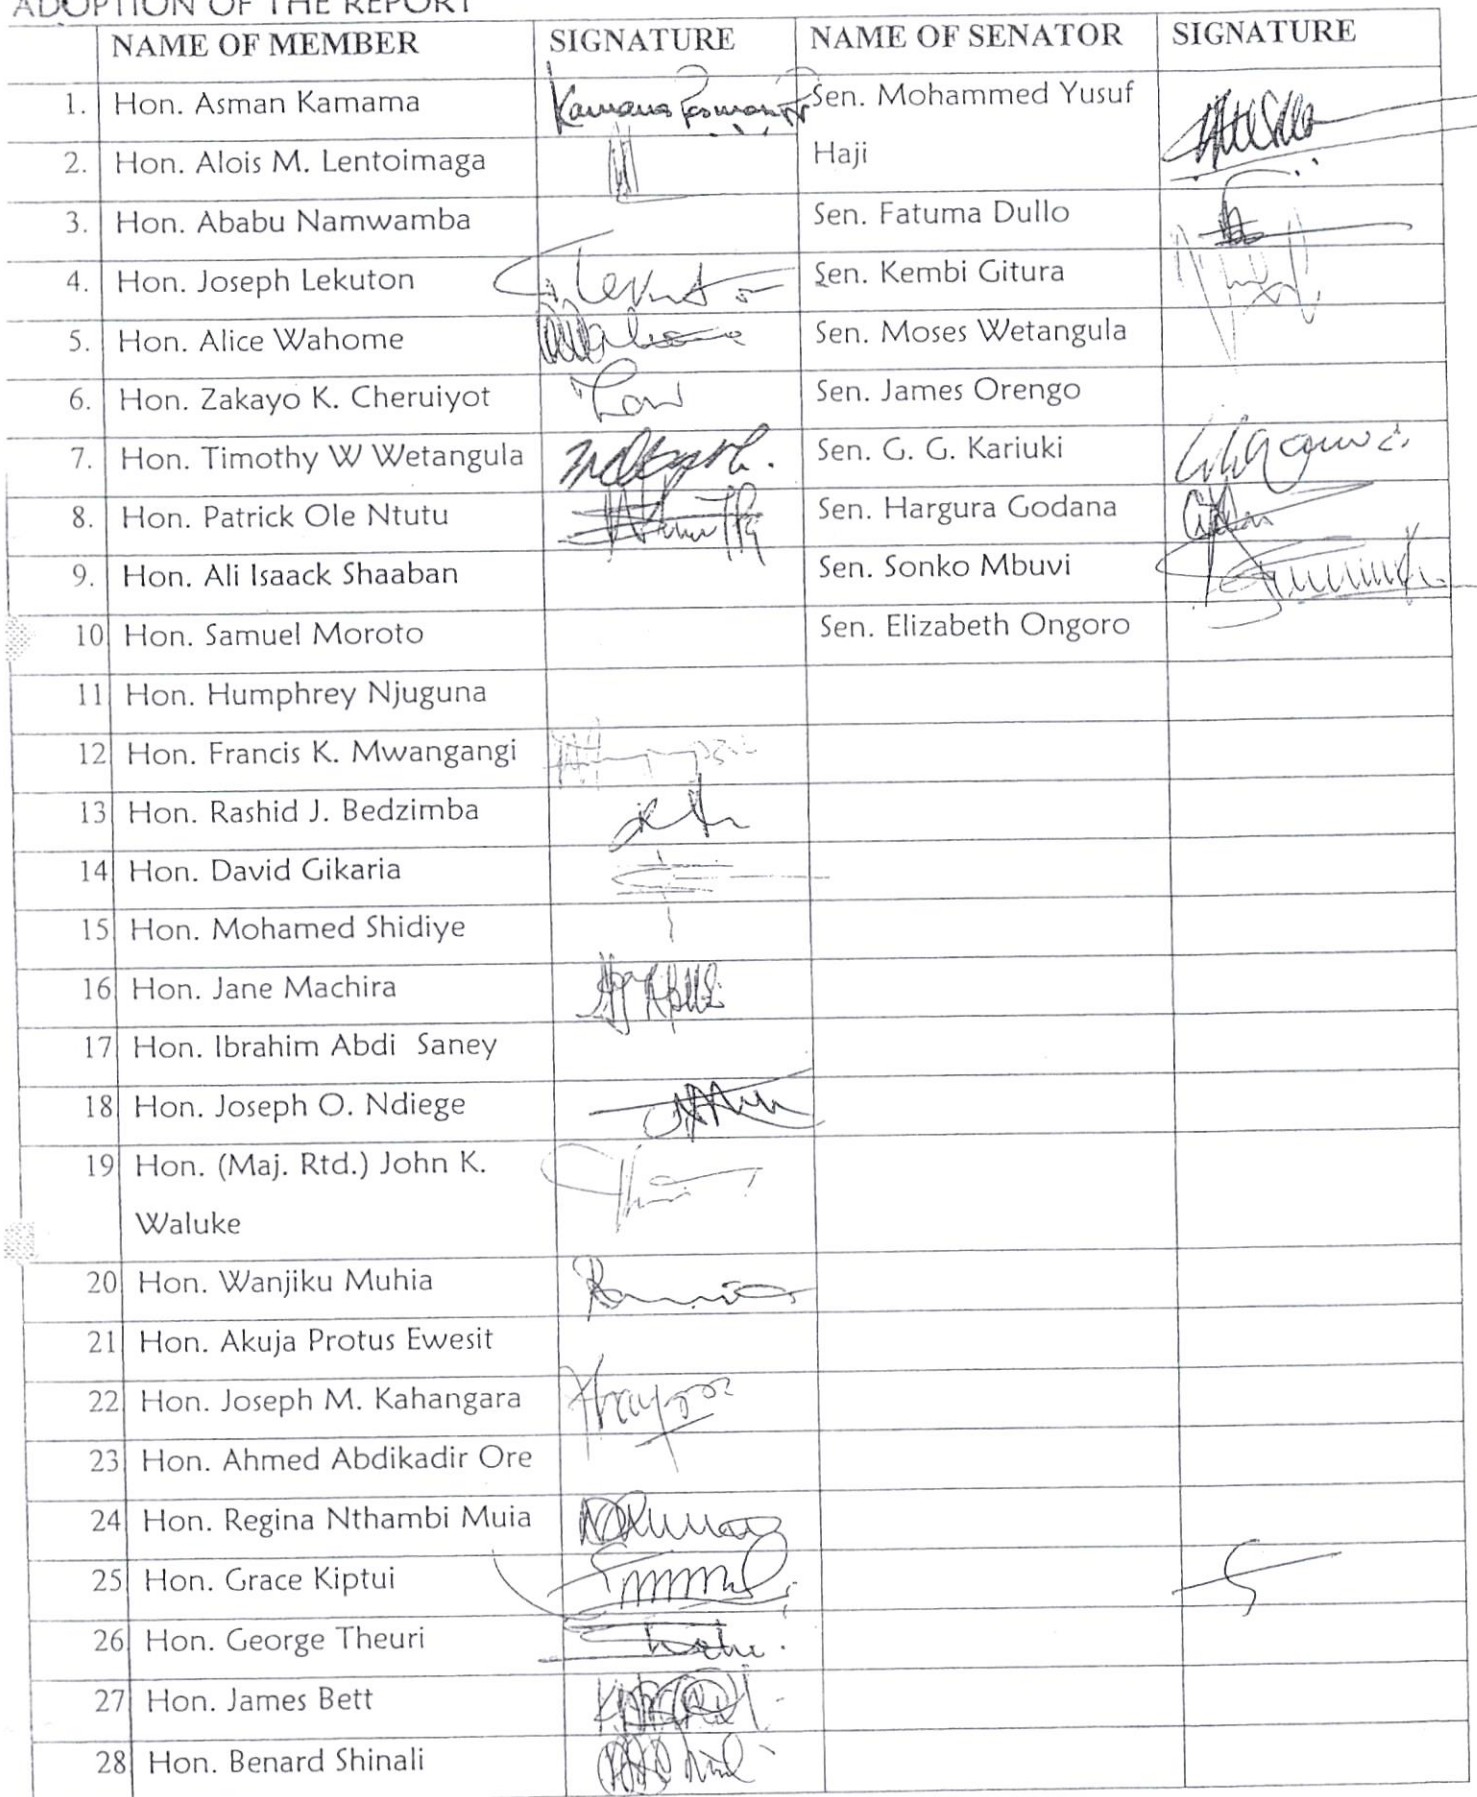 ADOPTION OF THE REPORT
NAME OF MEMBER SIGNATURE NAME OF SENATOR SIGNATURE
1. Hon. Asman Kamama Sen. Mohammed Yusuf
2. Hon. Alois M. Lentoimaga Haji
3. Hon. Ababu Namwamba Sen. Fatuma Dullo
4. Hon. Joseph Lekuton Sen. Kembi Gitura
5. Hon. Alice Wahome Sen. Moses Wetangula
6. Hon. Zakayo K. Cheruiyot Sen. James Orengo
7. Hon. Timothy W Wetangula Sen. G. G. Kariuki
8. Hon. Patrick Ole Ntutu Sen. Hargura Godana
9. Hon. Ali Isaack Shaaban Sen. Sonko Mbuvi
10 Hon. Samuel Moroto Sen. Elizabeth Ongoro
11 Hon. Humphrey Njuguna
12 Hon. Francis K. Mwangangi
13 Hon. Rashid J. Bedzimba
14 Hon. David Gikaria
15 Hon. Mohamed Shidiye
16 Hon. Jane Machira
17 Hon. Ibrahim Abdi Saney
18 Hon. Joseph O. Ndiege
19 Hon. (Maj. Rtd.) John K.
Waluke
20 Hon. Wanjiku Muhia
21 Hon. Akuja Protus Ewesit
22 Hon. Joseph M. Kahangara
23 Hon. Ahmed Abdikadir Ore
24 Hon. Regina Nthambi Muia
25 Hon. Grace Kiptui
26 Hon. George Theuri
27 Hon. James Bett
28 Hon. Benard Shinali